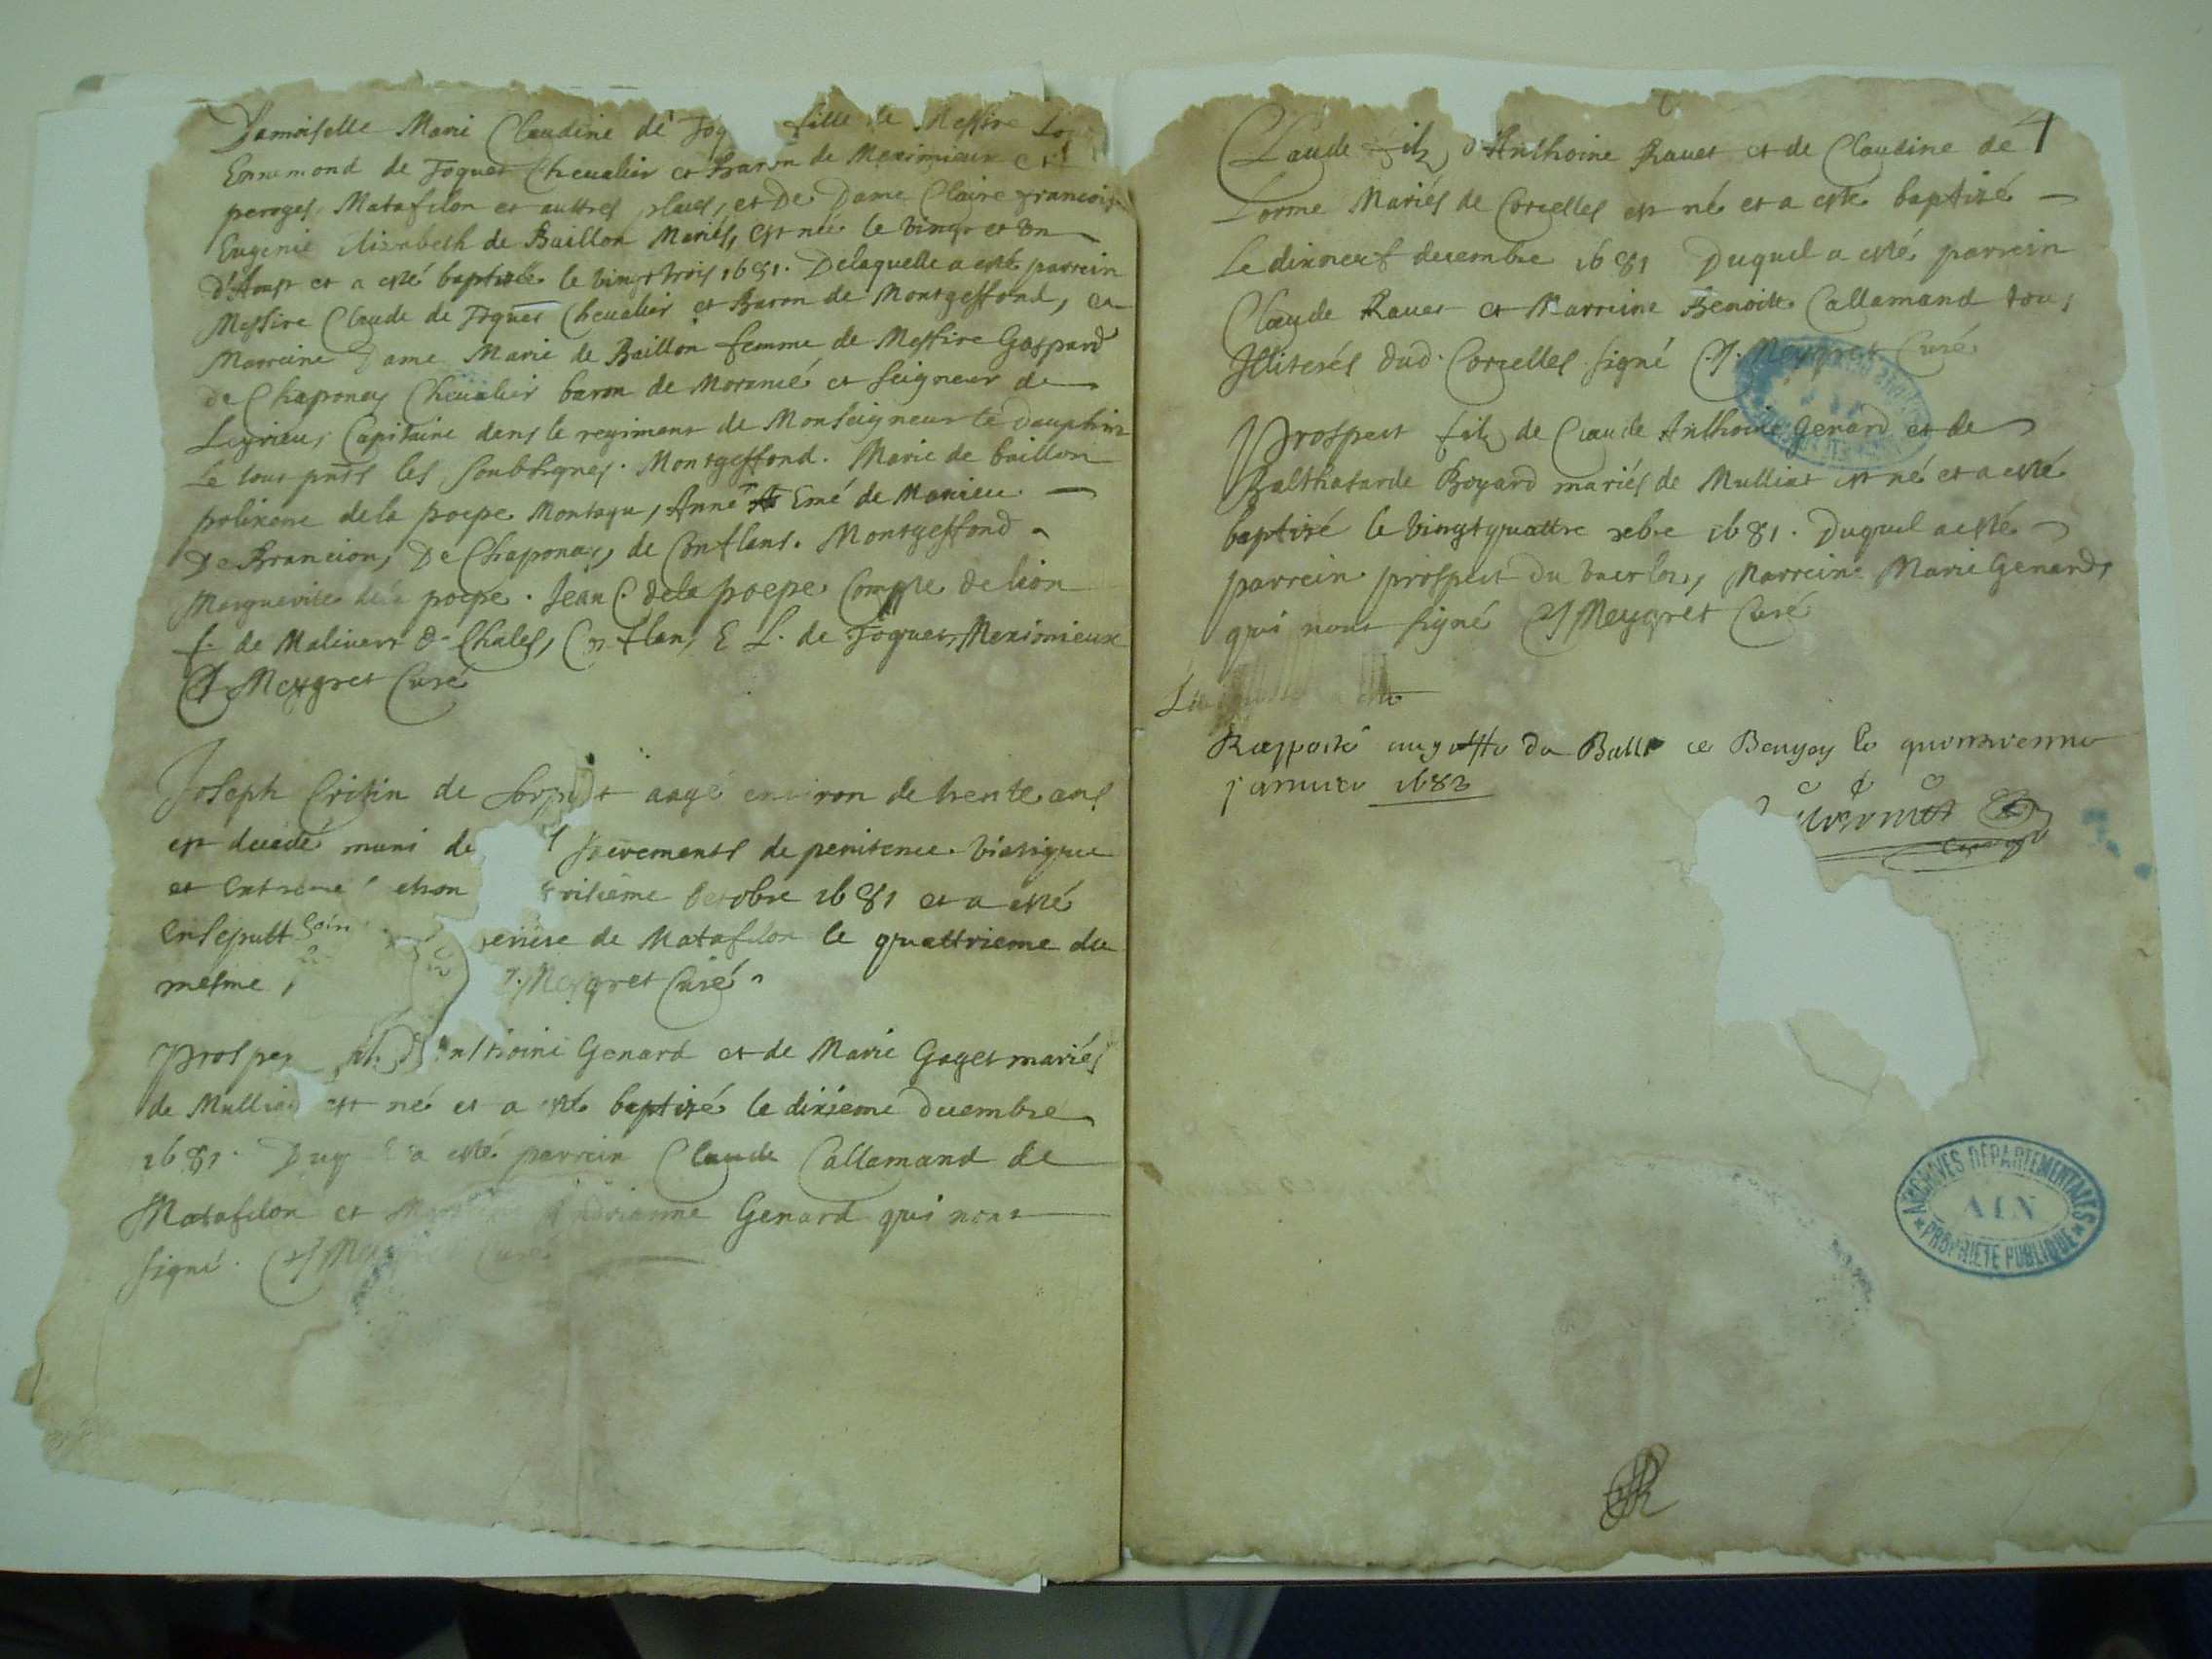 Damoiselle Marie Claudine de Joq fille de Messire
Ennemond de Joquet Chevalier et Baron de Meximieux et
peroges, Matafelon et auttres places, et De Dame Claire francoise
Eugenie Elizabeth de Baillon Mariés, est née le vingt et un
d'Aoust et a esté baptisée le vingt trois 1681. Delaquelle a esté parrein
Messire Claude de Joquet Chevalier et Baron de Montgeffond, et
Marreine Dame Marie de Baillon femme de Messire Gaspard
de Chaponay Chevalier baron de Morancé et seigneur de
Leyrieu, Capitaine dens le regiment de Monseigneur le Dauphin
Le tout pnts les soubsignes. Montgeffond. Marie de baillon
polixene de la poepe Montagu, Anne Emé de Manieu
De Brancion, De Chaponay, de Conflans. Montgeffond
Marguerite de la poepe. Jean C. de la poepe Compte de lion
f. de Malivert de Chales, Conflans, E L. de Joquet, Meximieux
Meygret Curé
Joseph Critin de aagé environ de trente ans
est decedé muni de sacrements de penitence viatique
et Extreme octobre 1681 et a esté
ensepult de Matafelon le quattrieme du
mesme, Meygret Curé
Prosper Anthoine Genard et de Marie Gaget mariés
de Mulliat est né et a esté baptizé le dixieme decembre
1681. Duq a esté parrein Claude Callamand de
Matafelon et Andrianne Genard qui n'ont
signé. Curé
4
Claude filz d'Anthoine Ravet et de Claudine de
Lorme Mariés de Corcelles est né et a esté baptizé
Le dixneuf decembre 1681 Duquel a esté parrein
Claude Ravet et Marreine Benoitte Callamand tous
Illiterés dud. Corcelles signé Meygret Curé
Prospert filz de Claude Anthoine Genard et de
Balthasarde Boyard mariés de Mulliat est né et a esté
baptizé le vingt quattre xbre 1681. Duquel a esté
parrein prospert du Marreine Marie Genard,
qui n'ont signé Meygret Curé
Rapporté au greffe du Balle de Beugey le quinzieme
janvier 1682
ARCHIVES DÉPARTEMENTALES
AIN
PROPRIÉTÉ PUBLIQUE